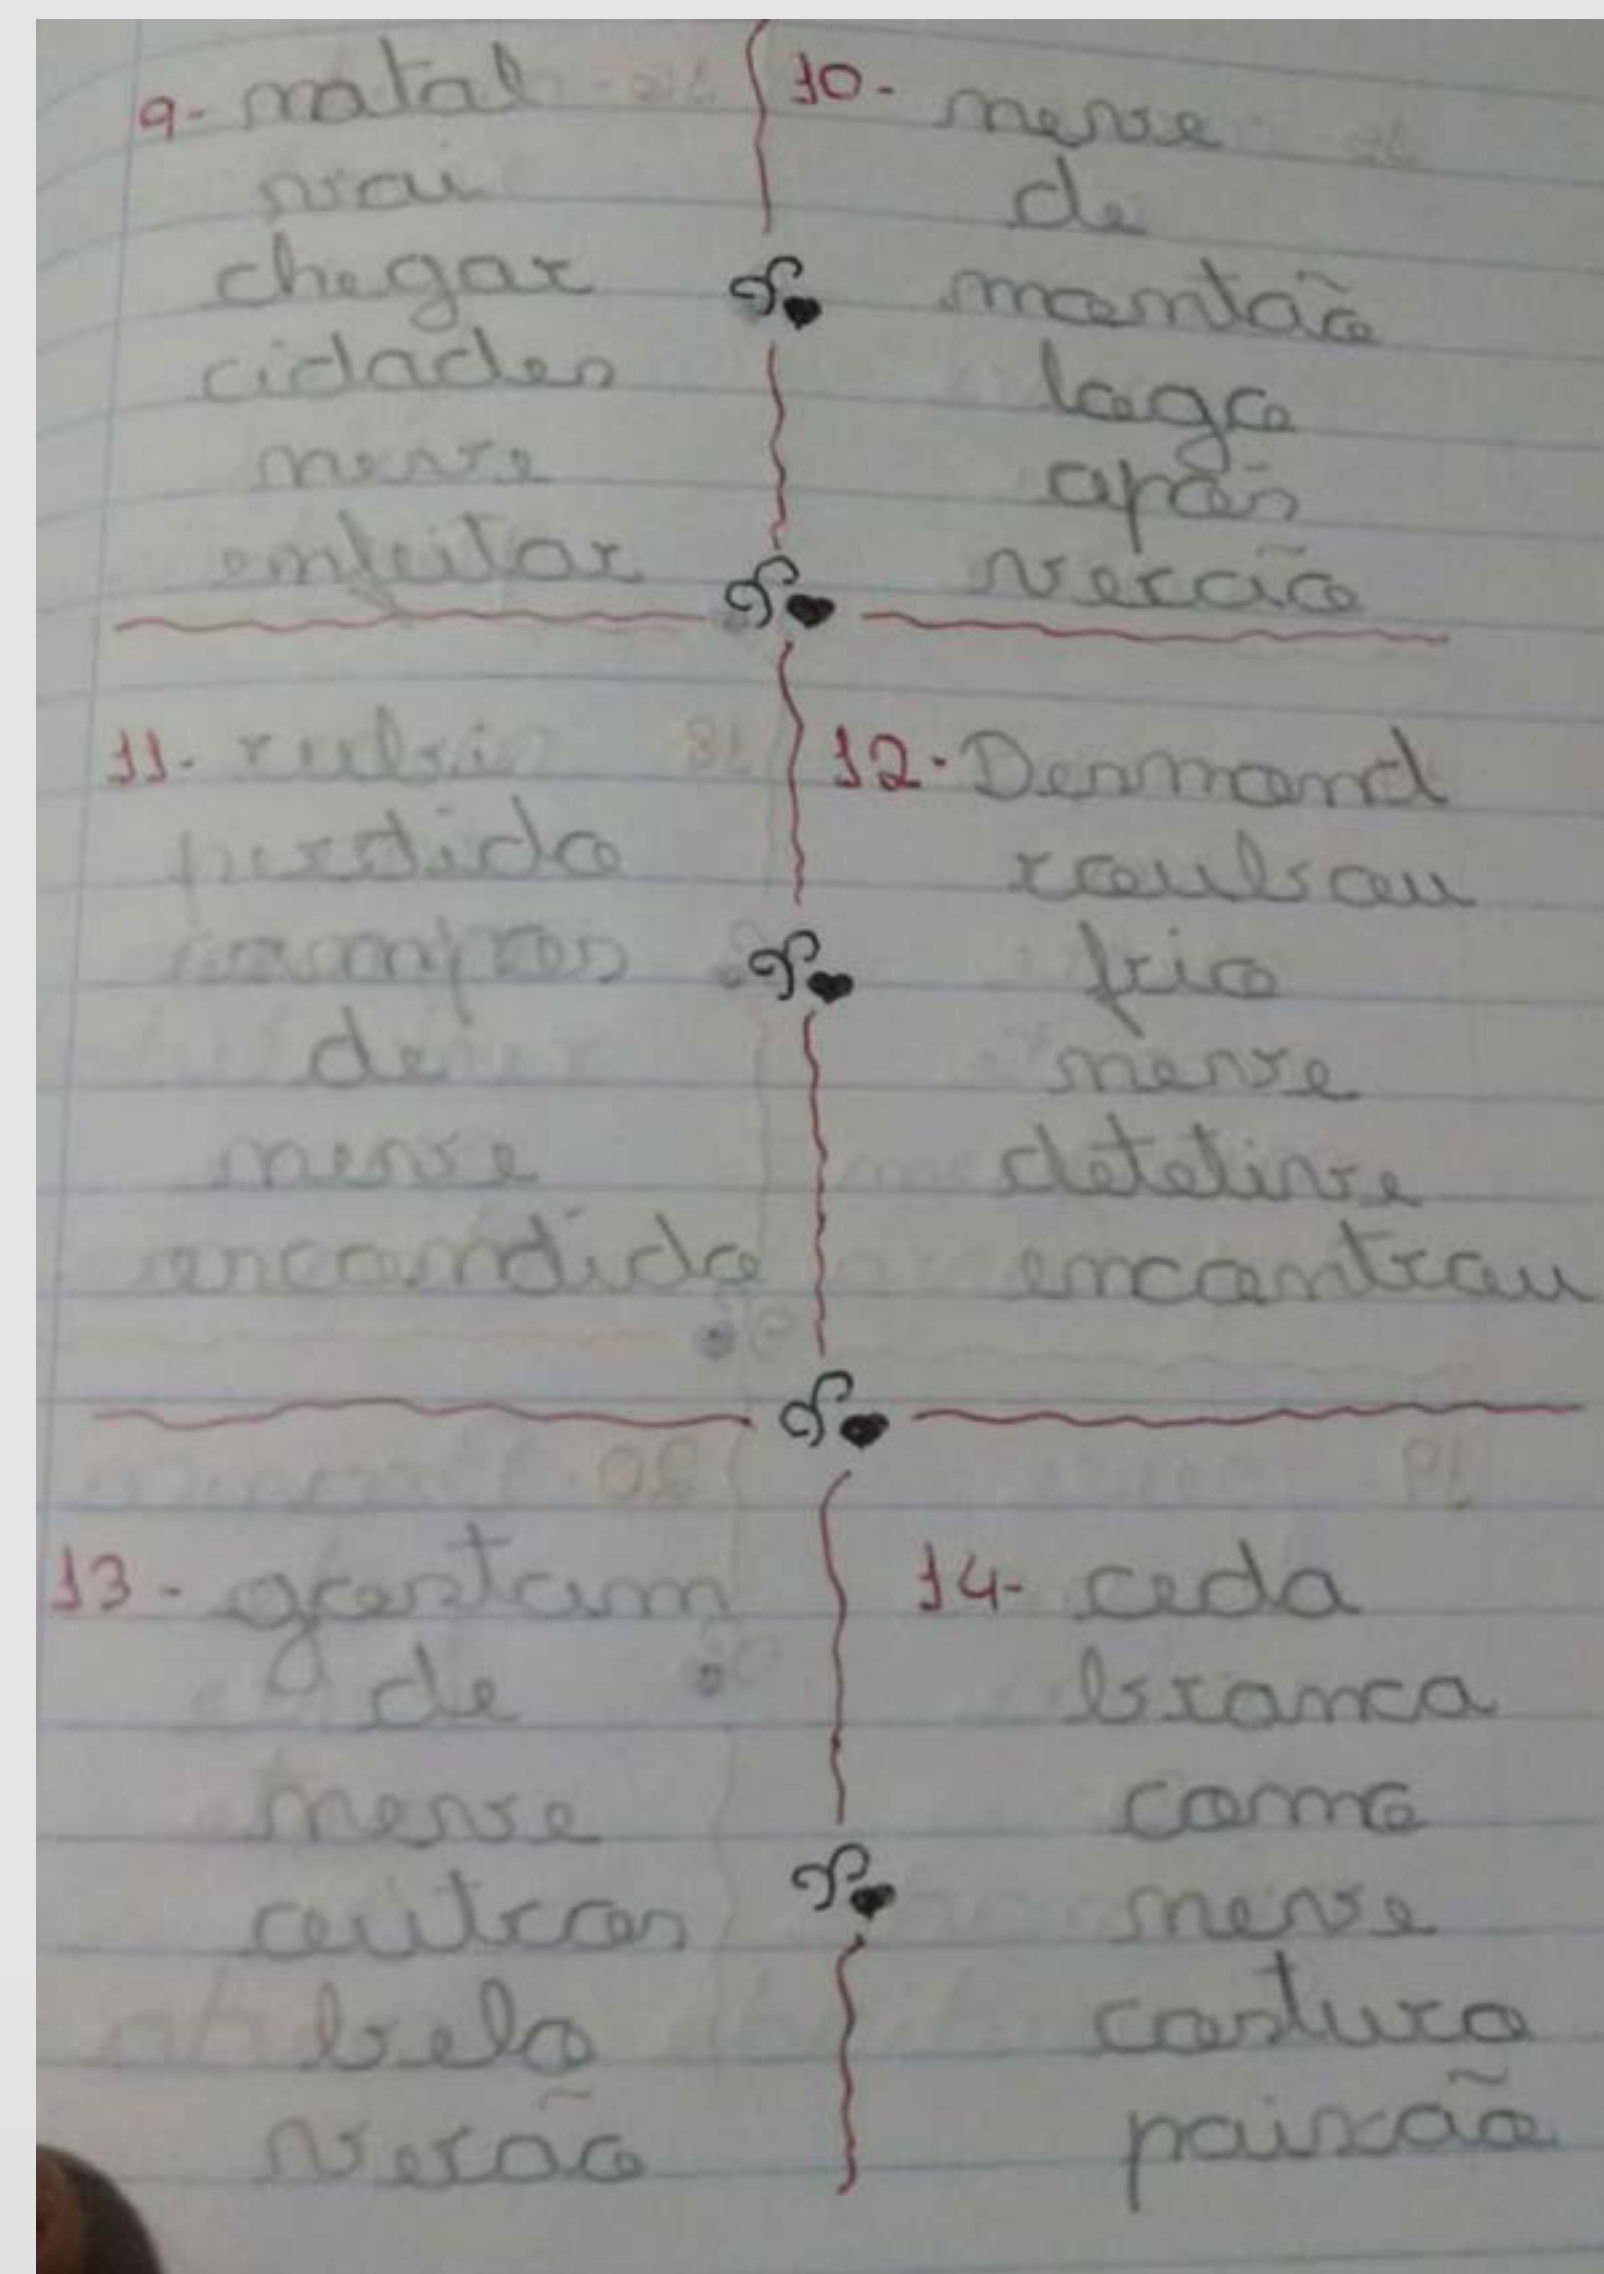 9- natal
vai
chegar
cidades
neve
enfeitar
10- neve
de
montão
logo
após
verão
11- rubi
perdido
campos
de
neve
escondido
12- Desmond
roubou
frio
neve
detetive
encontrou
13- gostam
de
neve
outros
belo
verão
14- ceda
branca
como
neve
costuro
paixão